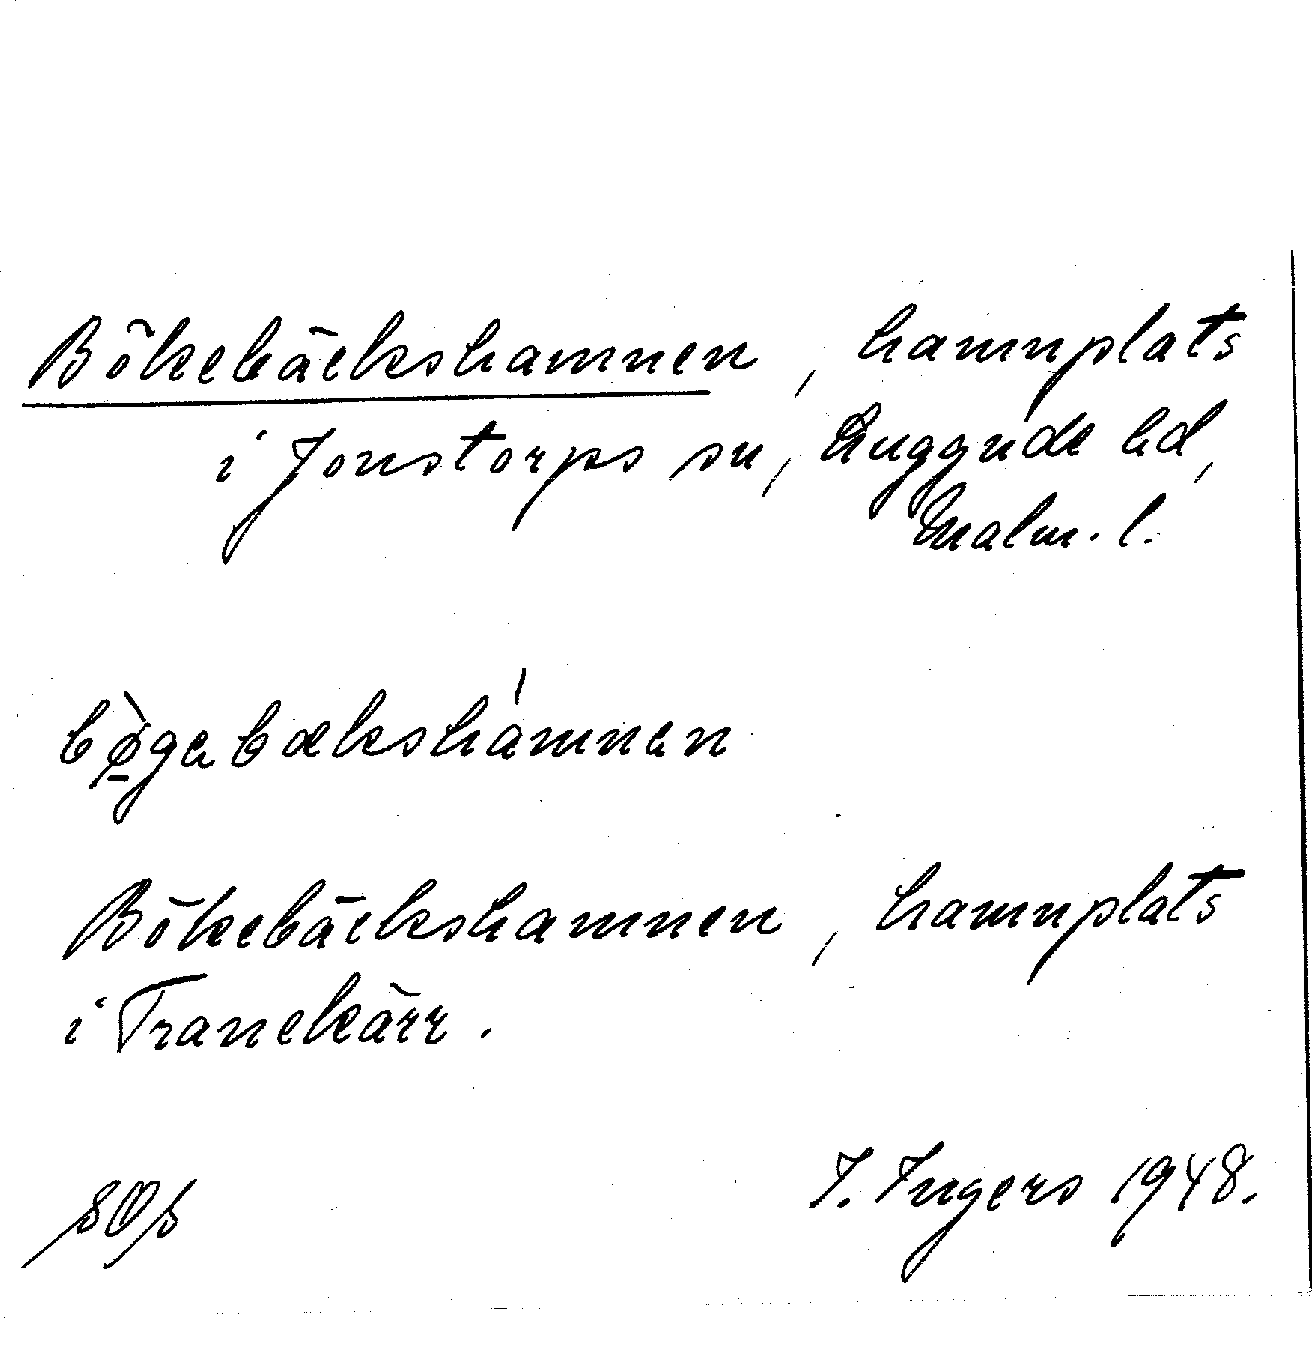 Bökebäckshamnen, hamnplats
i Jonstorps sn, Luggude hd,
Malm. l.
bø̀gabækshámnan
Bökebäckshamnen, hamnplats
i Tranekärr.
I. Ingers 1948.